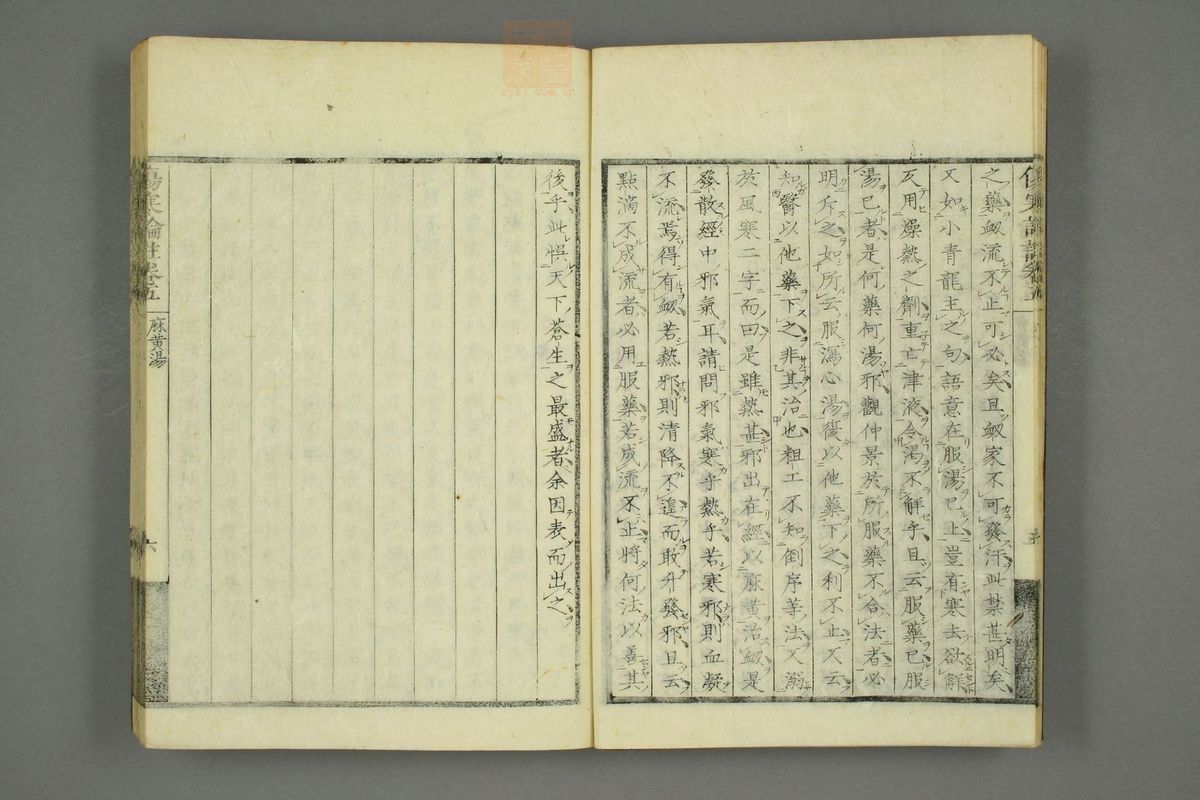 之藥衂流不止可必矣且衂家不可發汗此禁甚明矣
又如小青龍主之句語意在服湯已上豈有寒去欲觧
反用燥熱之劑重亡津液令渴不觧乎且云服藥已服
湯已者是何藥何湯邪觀仲景於所服藥不合法者必
明斥之如所云服瀉心湯復以他藥下之利不止又云
知醫以他藥下之非其治也粗工不知倒序等法又溺
於風寒二字而曰是雖熱甚邪出在經以麻黄治衂是
發散經中邪氣耳請問邪氣寒乎熱乎若寒邪則血凝
不流焉得有衂若熱邪則清降不遑而敢升發邪且云
點滴不成流者必用服藥若成流不止將何法以善其
後乎此悞天下蒼生之最盛者余因表而出之
傷寒論註卷五
麻黄湯
六